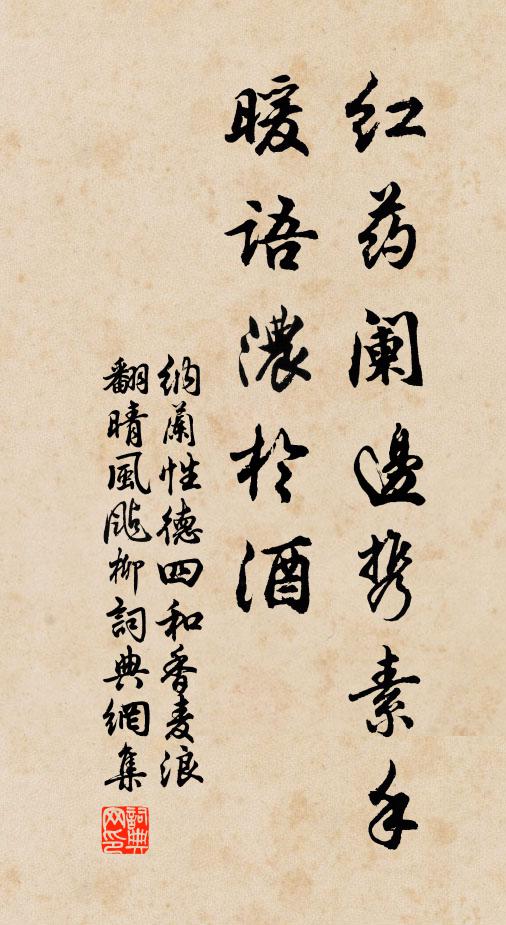 红药阑边携素手
暖语浓於酒
纳兰性德四和香麦浪
翻晴風颭柳詞典網集
詞典网印